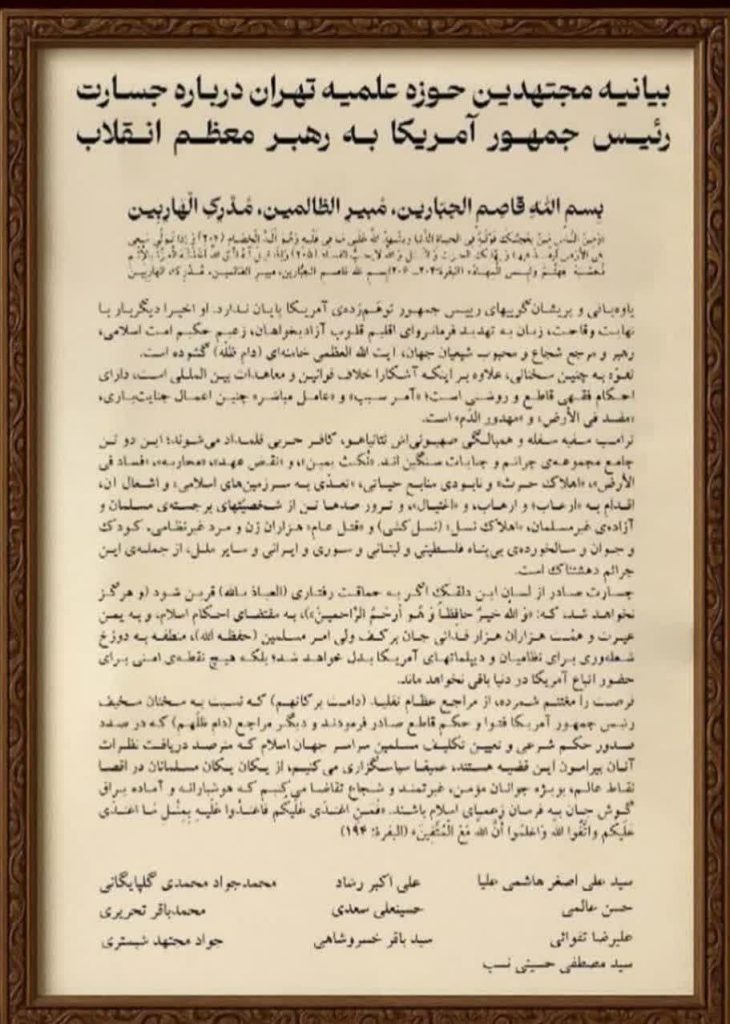 بیانیه مجتهدین حوزه علمیه تهران درباره جسارت
رئیس جمهور آمریکا به رهبر معظم انقلاب
بسم اللهِ قاصِمِ الجَبّارین، مُبیرِ الظّالمین، مُدْرِکِ الْهاربین
یاوه‌بافی و پریشان‌گویهای رییس جمهور توهّم‌زده‌ی آمریکا پایان ندارد. او اخیرا دیگربار با
نهایت وقاحت، زبان به تهدید فرمانروای اقلیم قلوب آزادیخواهان، زعیم حکیم امت اسلامی،
رهبر و مرجع شجاع و محبوب شیعیان جهان، آیت الله العظمی خامنه‌ای (دام ظلّه) گشوده است.
تفوّه به چنین سخنانی، علاوه بر اینکه آشکارا خلاف قوانین و معاهدات بین المللی است، دارای
احکام فقهی قاطع و روشنی است؛ «آمر سبب» و «عامل مباشر» چنین اعمال جنایت‌باری،
«مفسد فی الأرض» و «مهدور الدّم» است.
ترامپ سفیه سفله و همپالگی صهیونی‌اش نتانیاهو، کافر حربی قلمداد می‌شوند؛ این دو تن
جامع مجموعه‌ی جرائم و جنایات سنگین اند. «نُکث یمین»، و «نقض عهد»، «محاربه»، «فساد فی
الأرض»، «اهلاک حرث» و نابودی منابع حیاتی، «تعدّی به سرزمین‌های اسلامی» و اشغال آن،
اقدام به «ارعاب» و ارهاب، و «اغتیال»، و ترور صدها تن از شخصیّتهای برجسته‌ی مسلمان و
آزاده‌ی غیرمسلمان، «اهلاک نسل» (نسل‌کشی) و «قتل عام» هزاران زن و مرد غیرنظامی، کودک
و جوان و سالخورده‌ی بی‌پناه فلسطینی و لبنانی و سوری و ایرانی و سایر ملل، از جمله‌ی این
جرائم دهشتناک است.
جسارت صادر از لسان این دلقک اگر به حماقت رفتاری (العیاذ بالله) قرین شود (و هرگز
نخواهد شد، که: «وَ الله خیرٌ حافِظاً وَ هُوَ أرحَمُ الرّاحمینَ»)، به مقتضای احکام اسلام، و به یمن
غیرت و همّت هزاران هزار فدائی جان برکف ولی امر مسلمین (حفظه الله)، منطقه به دوزخ
شعله‌وری برای نظامیان و دیپلماتهای آمریکا بدل خواهد شد؛ بلکه هیچ نقطه‌ی امنی برای
حضور اتباع آمریکا در دنیا باقی نخواهد ماند.
فرصت را مغتنم شمرده، از مراجع عظام تقلید (دامت برکاتهم) که نسبت به سخنان سخیف
رئیس جمهور آمریکا فتوا و حکم قاطع صادر فرمودند و دیگر مراجع (دام ظلّهم) که در صدد
صدور حکم شرعی و تعیین تکلیف مسلمین سراسر جهان اسلام که مترصد دریافت نظرات
آنان پیرامون این قضیه هستند، عمیقا سپاسگزاری می‌کنیم، از یکان یکان مسلمانان در اقصا
نقاط عالم، بویژه جوانان مؤمن، غیرتمند و شجاع تقاضا می‌کنم که هوشیارانه و آماده براق
گوش جان به فرمان زعمای اسلام باشند. «فَمَنِ اعْتَدَی عَلَیْکُم فَاعْتَدُوا عَلَیهِ بِمِثْلِ مَا اعْتَدَی
عَلَیْکُم واتَّقُوا اللهَ وَاعْلَمُوا أنَّ الله مَعَ الْمُتَّقِینَ» (البقرة: ۱۹۴)
سید علی اصغر هاشمی علیا علی اکبر رشاد محمدجواد محمدی گلپایگانی
حسن عالمی حسینعلی سعدی محمدباقر تحریری
علیرضا تقوائی سید باقر خسروشاهی جواد مجتهد شبستری
سید مصطفی حسینی نسب